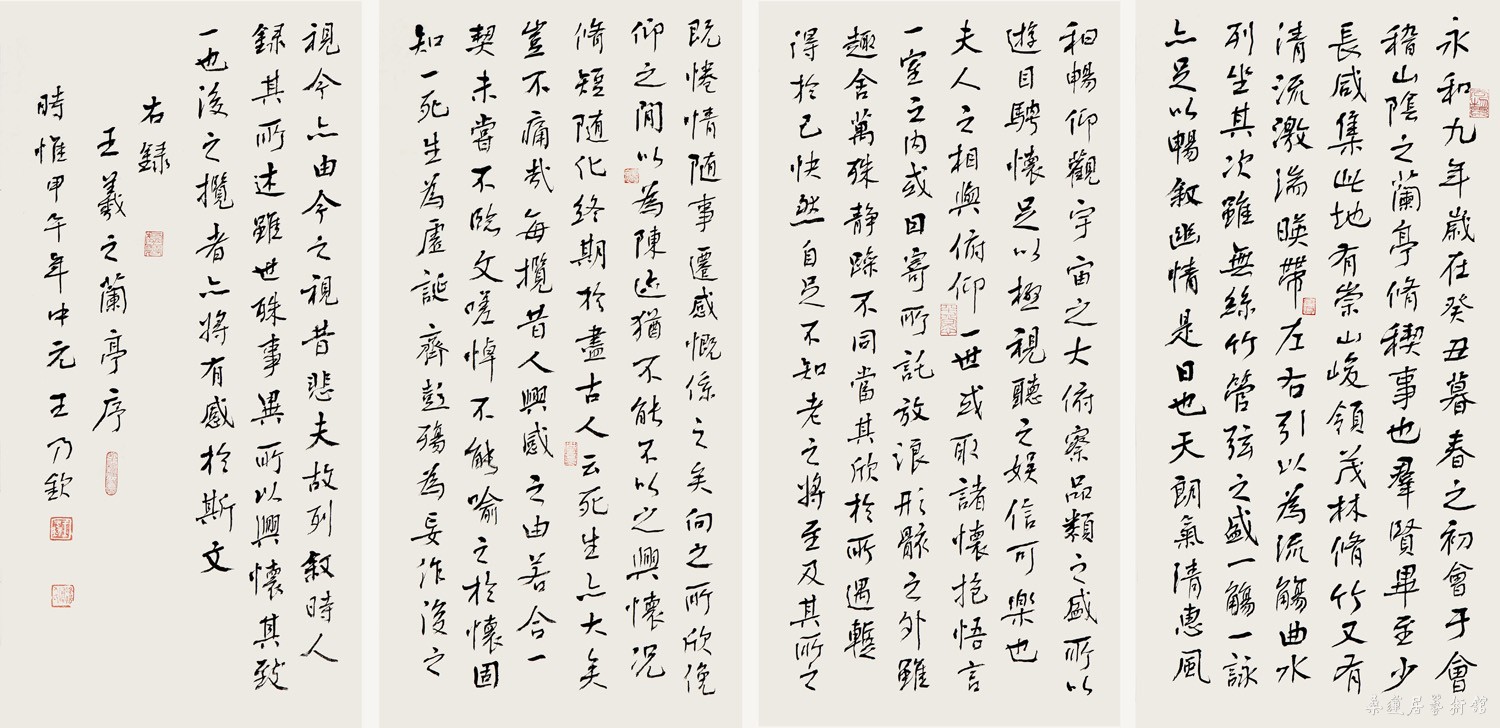 永和九年歲在癸丑暮春之初會于會
稽山陰之蘭亭脩稧事也羣賢畢至少
長咸集此地有崇山峻領茂林脩竹又有
清流激湍暎帶左右引以為流觴曲水
列坐其次雖無絲竹管弦之盛一觴一詠
亦足以暢敘幽情是日也天朗氣清惠風
和暢仰觀宇宙之大俯察品類之盛所以
遊目騁懷足以極視聽之娛信可樂也
夫人之相與俯仰一世或取諸懷抱悟言
一室之內或因寄所託放浪形骸之外雖
趣舍萬殊静躁不同當其欣於所遇蹔
得於己快然自足不知老之將至及其所之
既惓情随事遷感慨係之矣向之所欣俛
仰之間以為陳迹猶不能不以之興懷况
脩短随化終期於盡古人云死生亦大矣
豈不痛哉每攬昔人興感之由若合一
契未嘗不臨文嗟悼不能喻之於懷固
知一死生為虛誕齊彭殤為妄作後之
視今亦由今之視昔悲夫故列敘時人
録其所述雖世殊事異所以興懷其致
一也後之攬者亦將有感於斯文
右録
王羲之蘭亭序
時惟甲午年中元王乃欽
桑蓮居藝術館